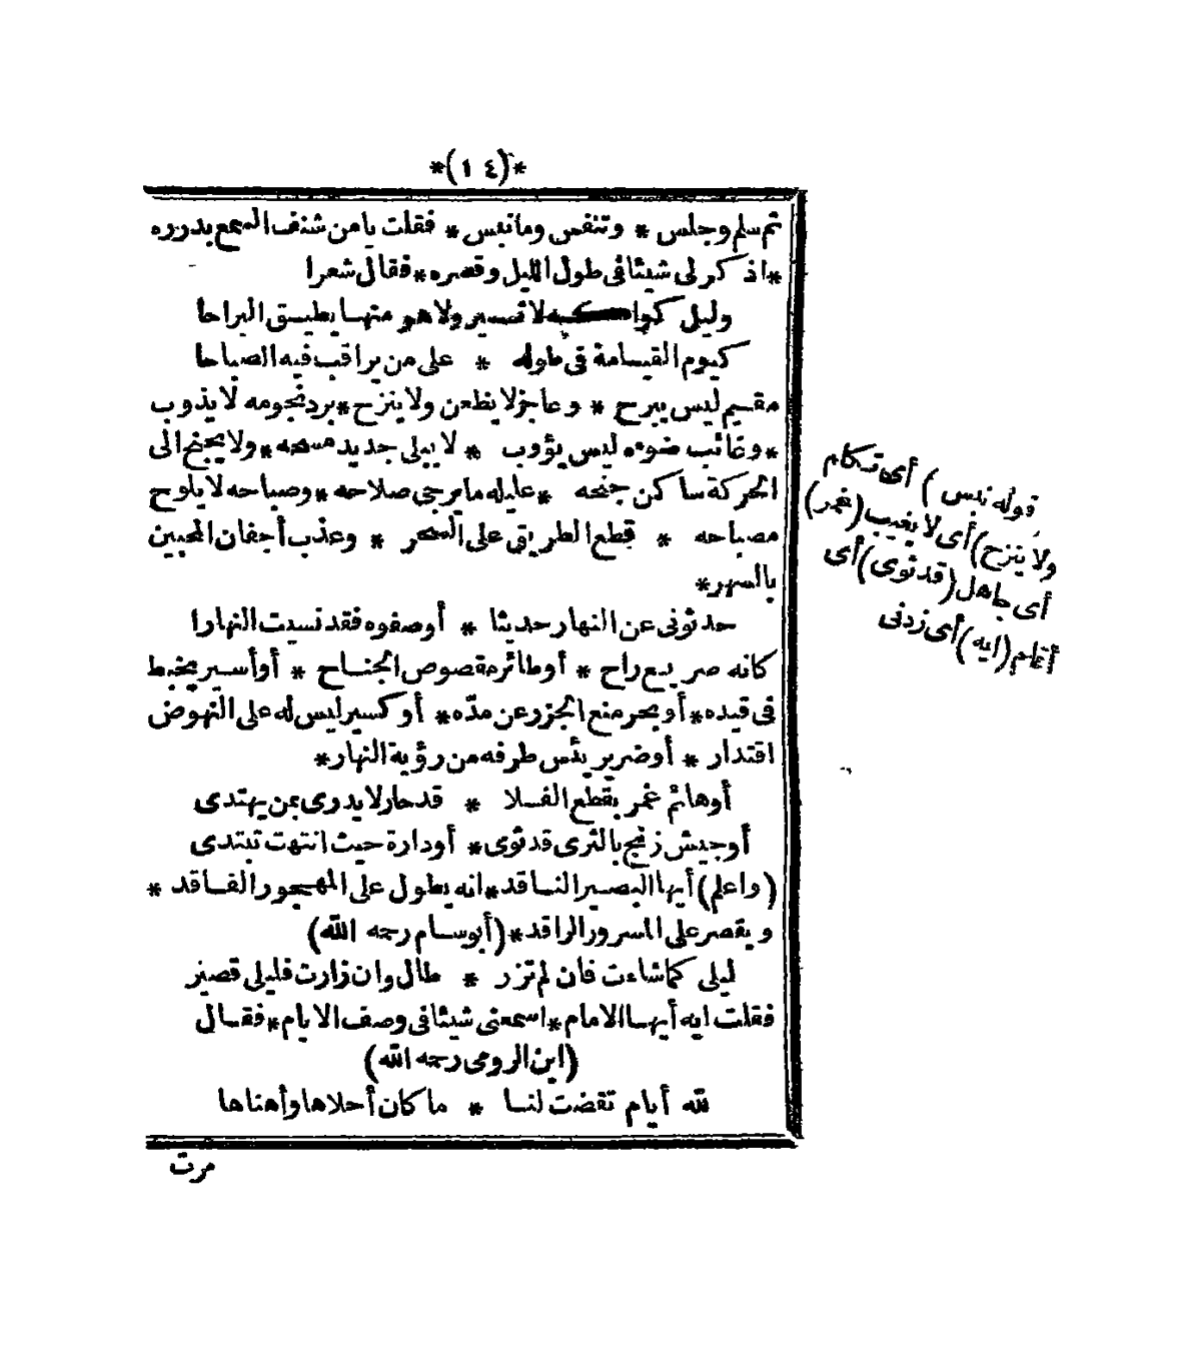 *(١٤)*
ثم سلم وجلس * وتنفس ومانبس * فقلت يامن شنف السمع بدرره
*اذكر لى شيئا فى طول الليل وقصره*فقال شعرا
وليل كواكبه لاتسير ولاهو منها يطيق البراحا
كيوم القيامة فى طوله * على من يراقب فيه الصباحا
مقيم ليس يبرح * وعاجز لايظعن ولاينزح*برد نجومه لايذوب
*وغائب ضوءه ليس يؤوب * لايبلى جديد مسحه*ولايجنح الى
الحركة ساكن جنحه *عليله مايرجى صلاحه*وصباحه لايلوح
مصباحه * قطع الطريق على السحر * وعذب أجفان المحبين
بالسهر*
حدثونى عن النهار حديثا * أوصفوه فقد نسيت النهارا
كانه صريع راح * أوطائر مقصوص الجناح * أوأسير يخبط
فى قيده*أوبحر منع الجزر عن مدّه* أوكسير ليس له على النهوض
اقتدار * أوضرير يئس طرفه من رؤية النهار*
أوهائم غمر بقطع الفلا * قد حار لايدرى بمن يهتدى
أوجيش زنج بالثرى قد ثوى* أودارة حيث انتهت تبتدى
(واعلم) أيها البصير الناقد*انه يطول على المهجور الفاقد *
ويقصر على المسرور الراقد*(أبو سام رحمه الله)
ليلى كماشاءت فان لم تزر * طال وان زارت فليلى قصير
فقلت ايه أيها الامام*اسمعنى شيئا فى وصف الايام*فقال
(ابن الرومى رحمه الله)
لله أيام تقضت لنا * ماكان أحلاها وأهناها
مرت
قوله نبس ) أى تكلم
ولا ينزح) أى لا يغيب (غمر)
أى جاهل (قد ثوى) أى
أقام (ايه) أى زدنى